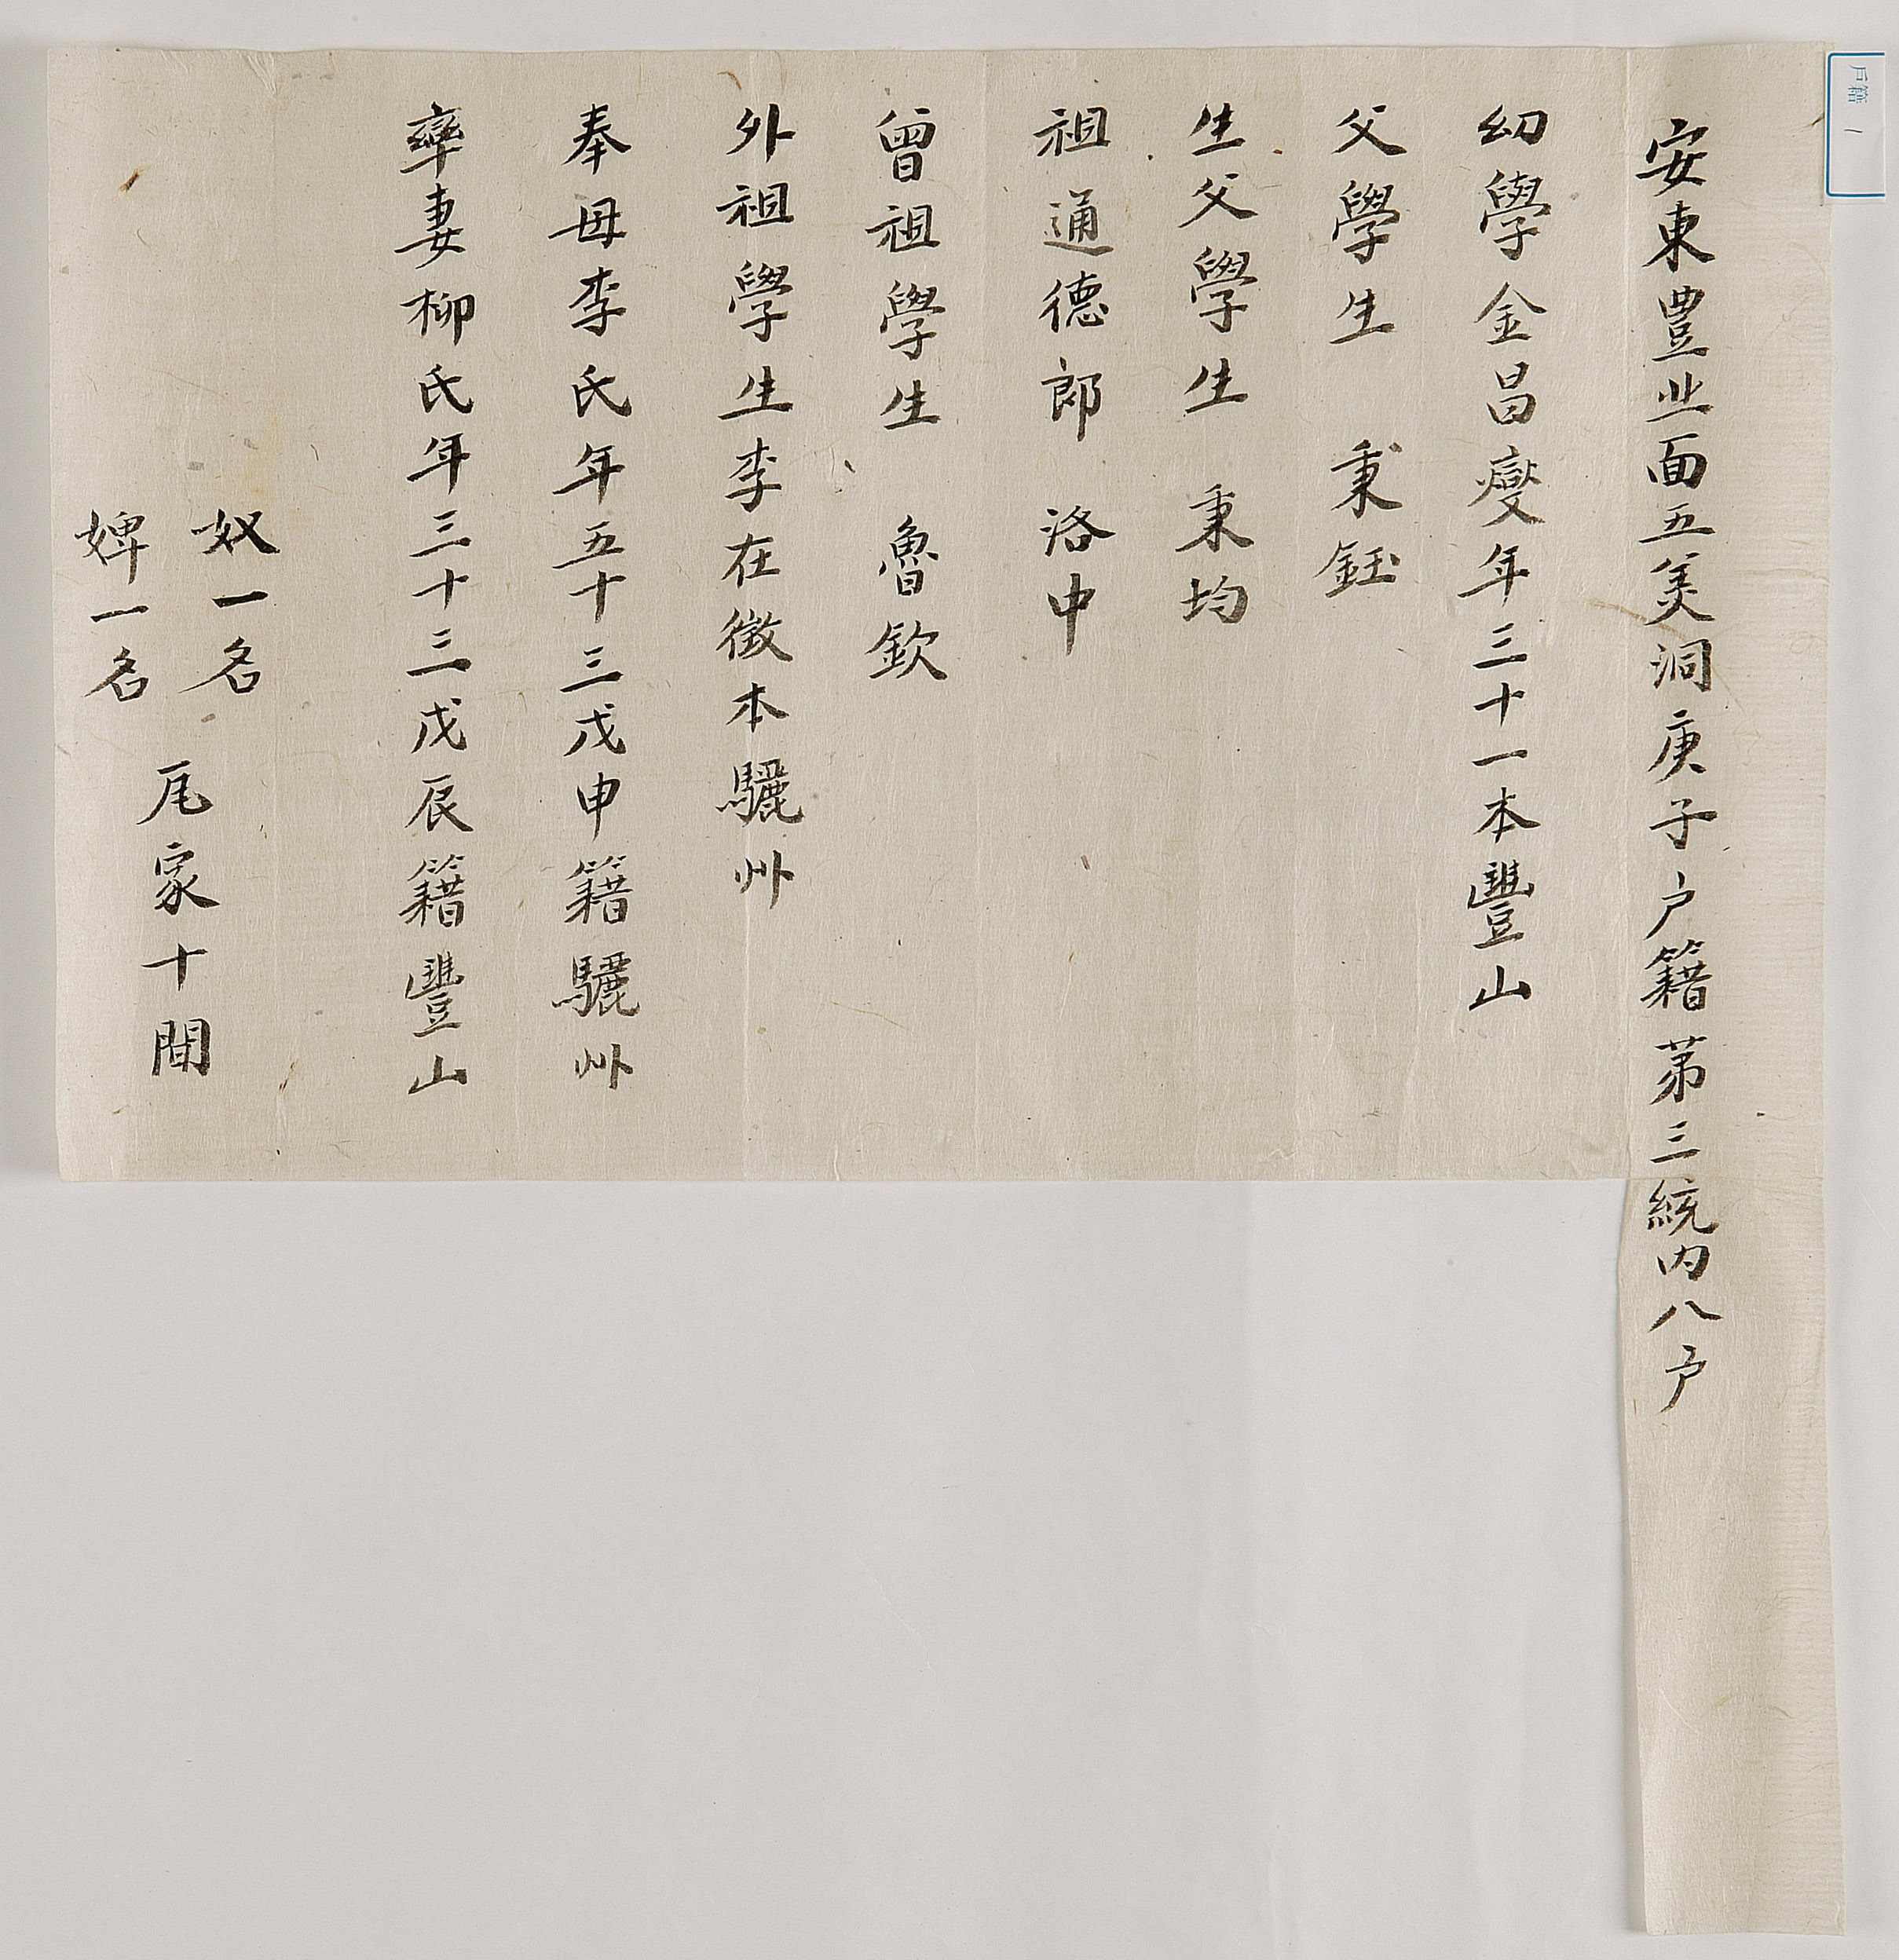 戶籍 一
安東豊北面五美洞庚子户籍苐三統内八户
幼學金昌燮年三十一本豐山
父學生 秉鈺
生父學生 秉均
祖通德郎 洛中
曾祖學生 魯欽
外祖學生李在徵本驪州
奉母李氏年五十三戊申籍驪州
率妻柳氏年三十三戊辰籍豐山
奴一名
婢一名
瓦家十間